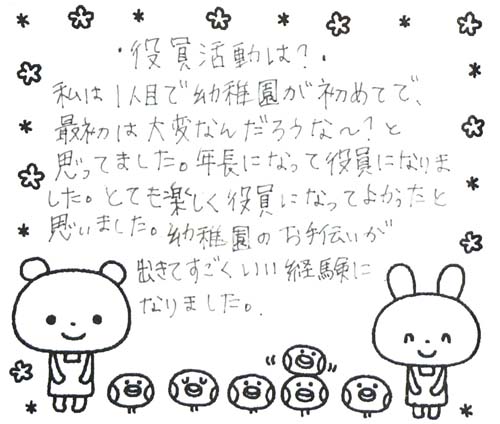 ・役員活動は?・
私は1人目で幼稚園が初めてで、
最初は大変なんだろうな〜?と
思ってました。年長になって役員になりま
した。とても楽しく役員になってよかったと
思いました。幼稚園のお手伝いが
出きてすごくいい経験に
なりました。